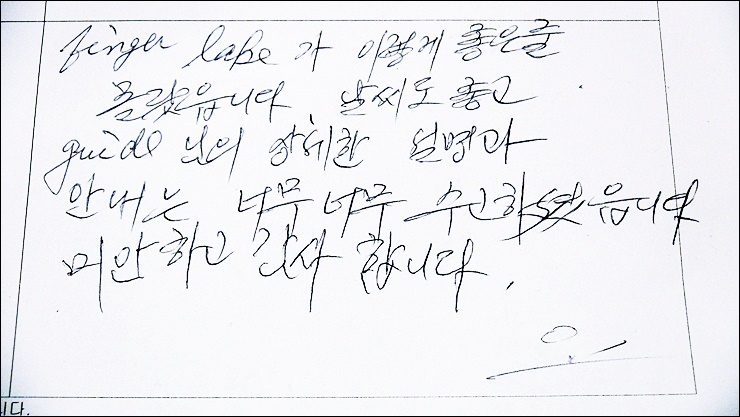 finger lake 가 이렇게 좋은줄
몰랐읍니다 날씨도 좋고
guide 님의 상세한 설명과
안내는 너무너무 수고하셨읍니다
미안하고 감사 합니다.
오
니다.